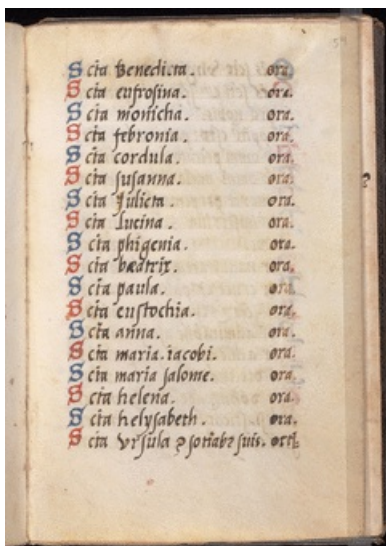 Scta Benedicta. ora.
Scta eufrosina. ora.
Scta monicha. ora.
Scta febronia. ora.
Scta cordula. ora.
Scta susanna. ora.
Scta Julieta. ora.
Scta Lucina. ora.
Scta phigenia. ora.
Scta beatrix. ora.
Scta paula. ora.
Scta eustochia. ora.
Scta anna. ora.
Scta maria. iacobi. ora.
Scta maria salome. ora.
Scta helena. ora.
Scta helysabeth. ora.
Scta Ursula suis.